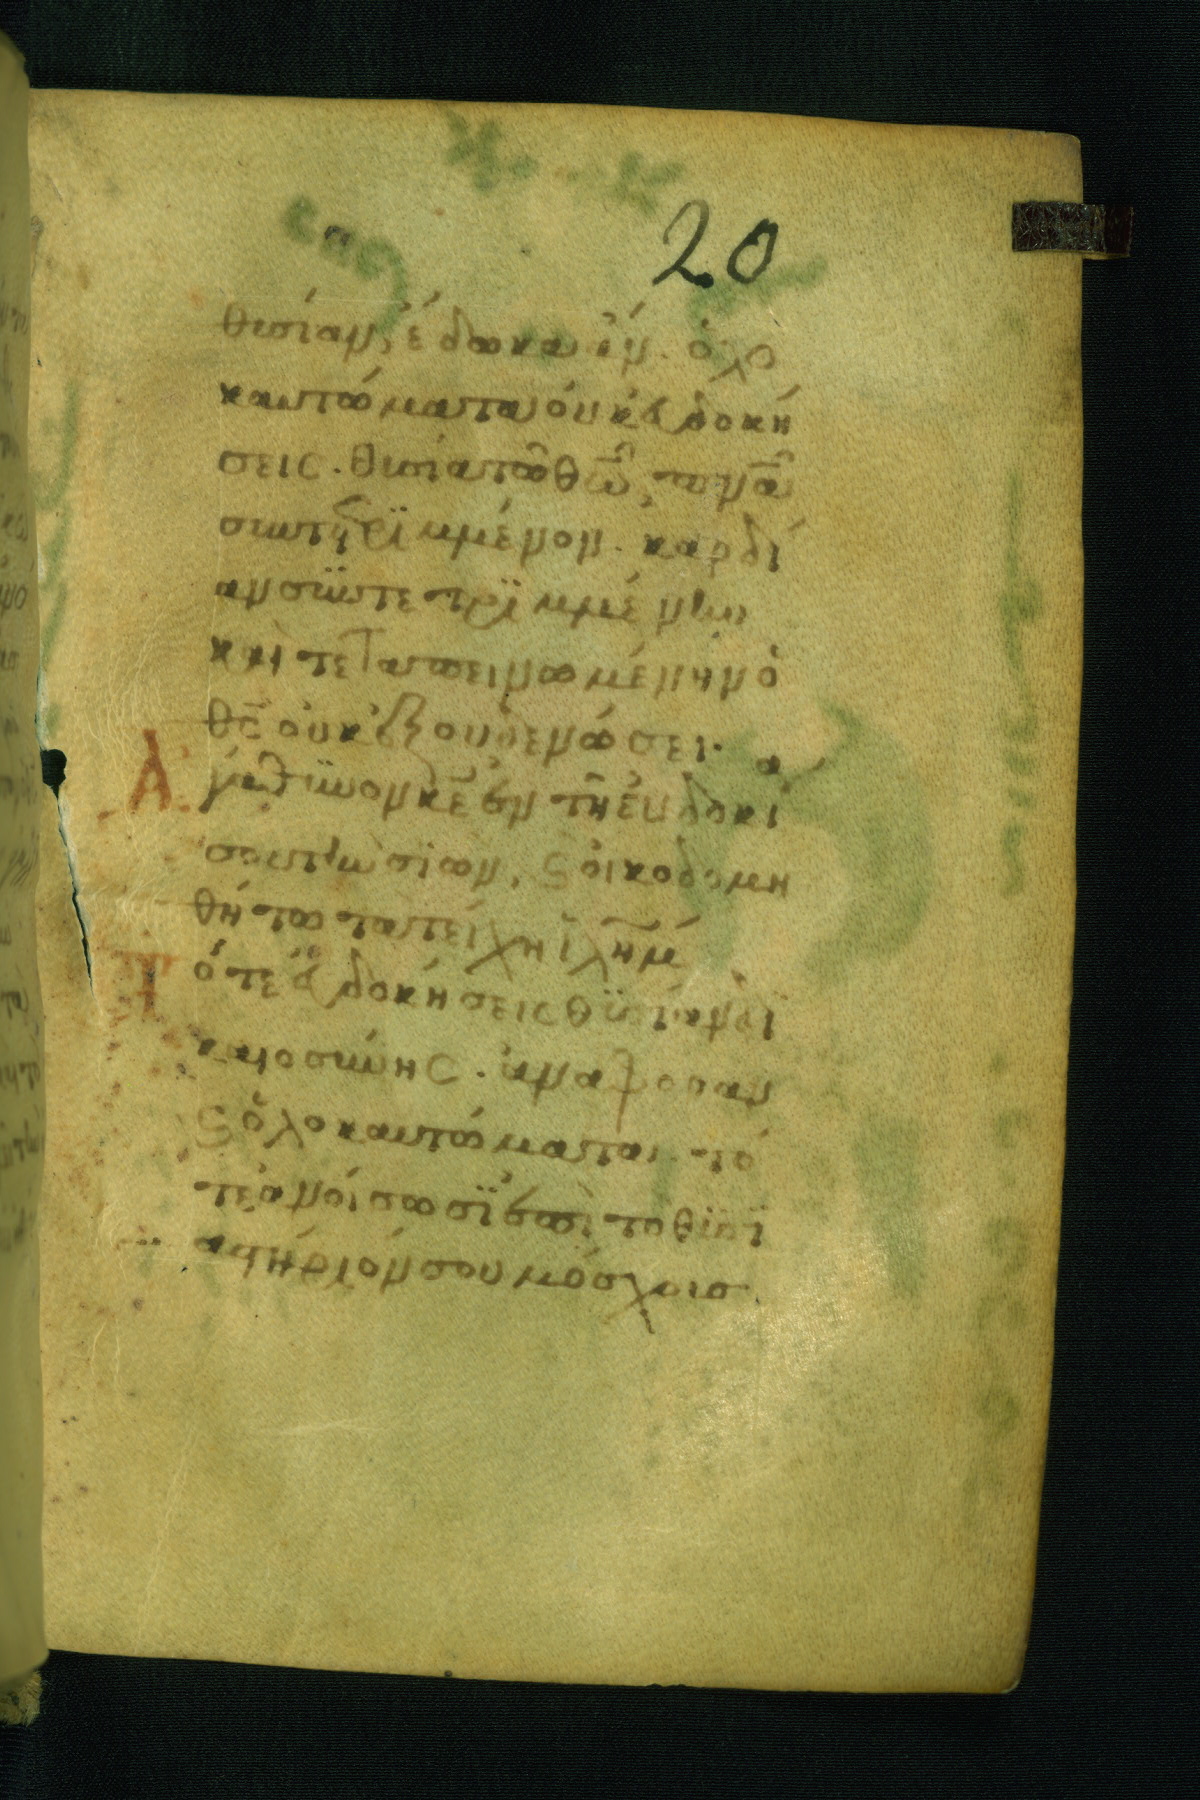 20
θυσίαν, ἔδωκα ἄν· ὁλο
καυτώματα οὐκ εὐδοκή
σεις· θυσία τῶ θῶ πνᾶ
συντετριμμένον· καρδί
αν συντετριμμένην
καὶ τεταπεινωμένην ὁ
θς οὐκ ἐξουδενώσει·
Ἀγάθυνον κε ἐν τῆ εὐδοκί
α σου τὴν σιών, ϛ οἰκοδομη
θήτω τὰ τείχη ἰλημ
Τότε εὐδοκήσεις θυσίαν
δικαιοσύνης· ἀναφορὰν
ϛ ὁλοκαυτώματα· τό
τε ἀνοίσουσιν ἐπὶ τὸ θυσι
αστήριόν σου μόσχους